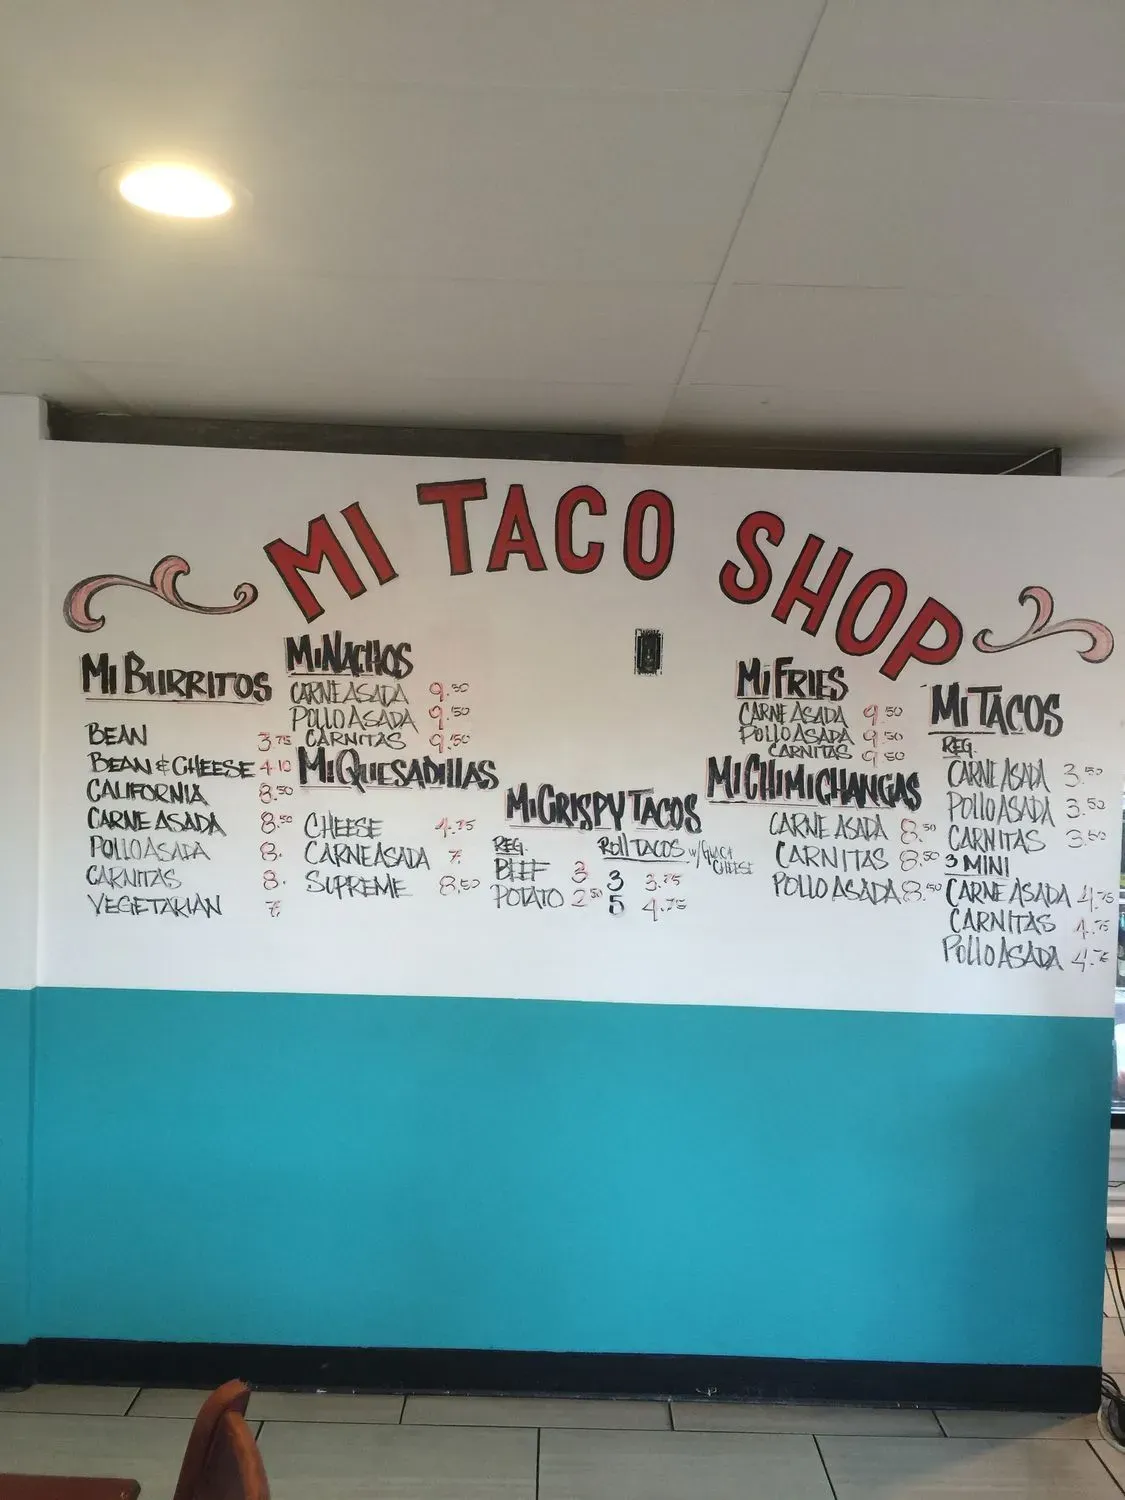 MI TACO SHOP
MI BURRITOS
BEAN 3.75
BEAN & CHEESE 4.10
CALIFORNIA 8.50
CARNE ASADA 8.50
POLLO ASADA 8.
CARNITAS 8.
VEGETARIAN 7.
MI NACHOS
CARNE ASADA 9.50
POLLO ASADA 9.50
CARNITAS 9.50
MI QUESADILLAS
CHEESE 4.75
CARNE ASADA 7.
SUPREME 8.50
MI CRISPY TACOS
REG.
BEEF 3
POTATO 2.50
ROLL TACOS w/ GUAC CHEESE
3 3.75
5 4.75
MI FRIES
CARNE ASADA 9.50
POLLO ASADA 9.50
CARNITAS 9.50
MI CHIMICHANGAS
CARNE ASADA 8.50
CARNITAS 8.50
POLLO ASADA 8.50
MI TACOS
REG.
CARNE ASADA 3.50
POLLO ASADA 3.50
CARNITAS 3.50
3 MINI
CARNE ASADA 4.75
CARNITAS 4.75
POLLO ASADA 4.75